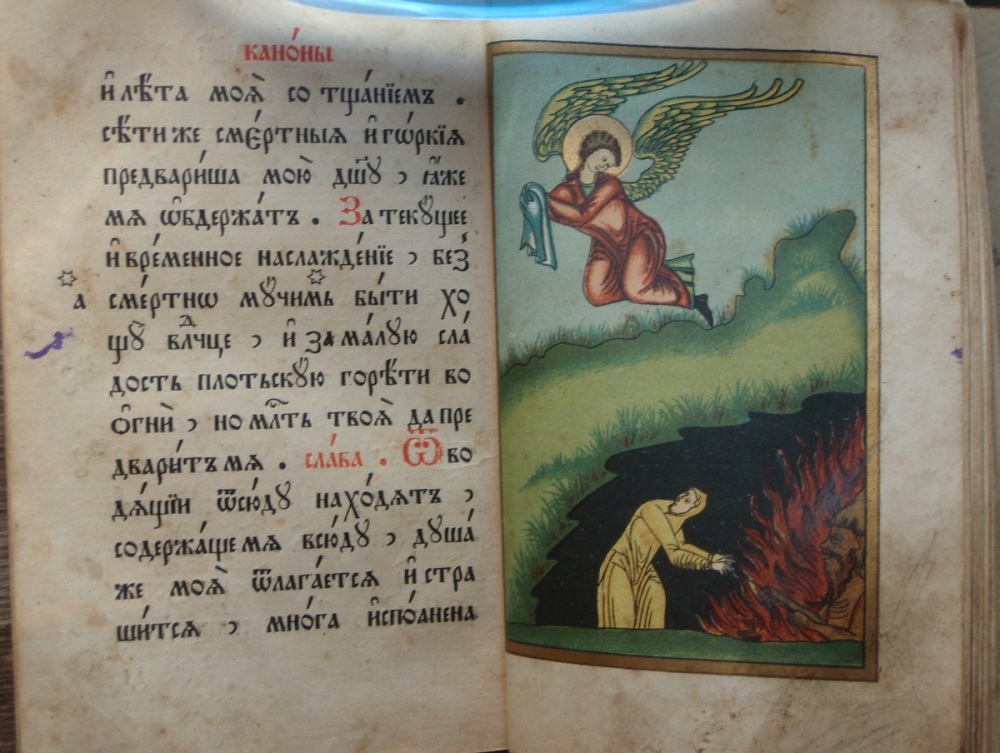 кано́ны
и҆ лѣ́та моѧ̀ со тща́нїемъ .
сѣ́ти же сме́ртныѧ и҆ гѡ́ркїѧ
предвари́ша мою̀ дш҃ꙋ , ꙗ҆́же
мѧ ѡ҆бдержа́тъ . За текꙋ́щее
и҆ вре́менное наслажде́нїе , без̾
а сме́ртнѡ мꙋ́чимь бы́ти хо
щꙋ̀ влⷣчце , и҆ за ма́лꙋю сла́
дость пло́тьскꙋю горѣ́ти во
ѻ҆гнѝ , но млⷭ҇ть твоѧ̀ да пре
двари́тъ мѧ . сла́ва . Ѿ во
дѧ́щїи ѿсю́дꙋ нахо́дѧтъ ,
содержа́ще мѧ всю́дꙋ , дꙋша́
же моѧ̀ ѿлага́етсѧ и҆ стра
ши́тсѧ , мно́га и҆спо́лнена